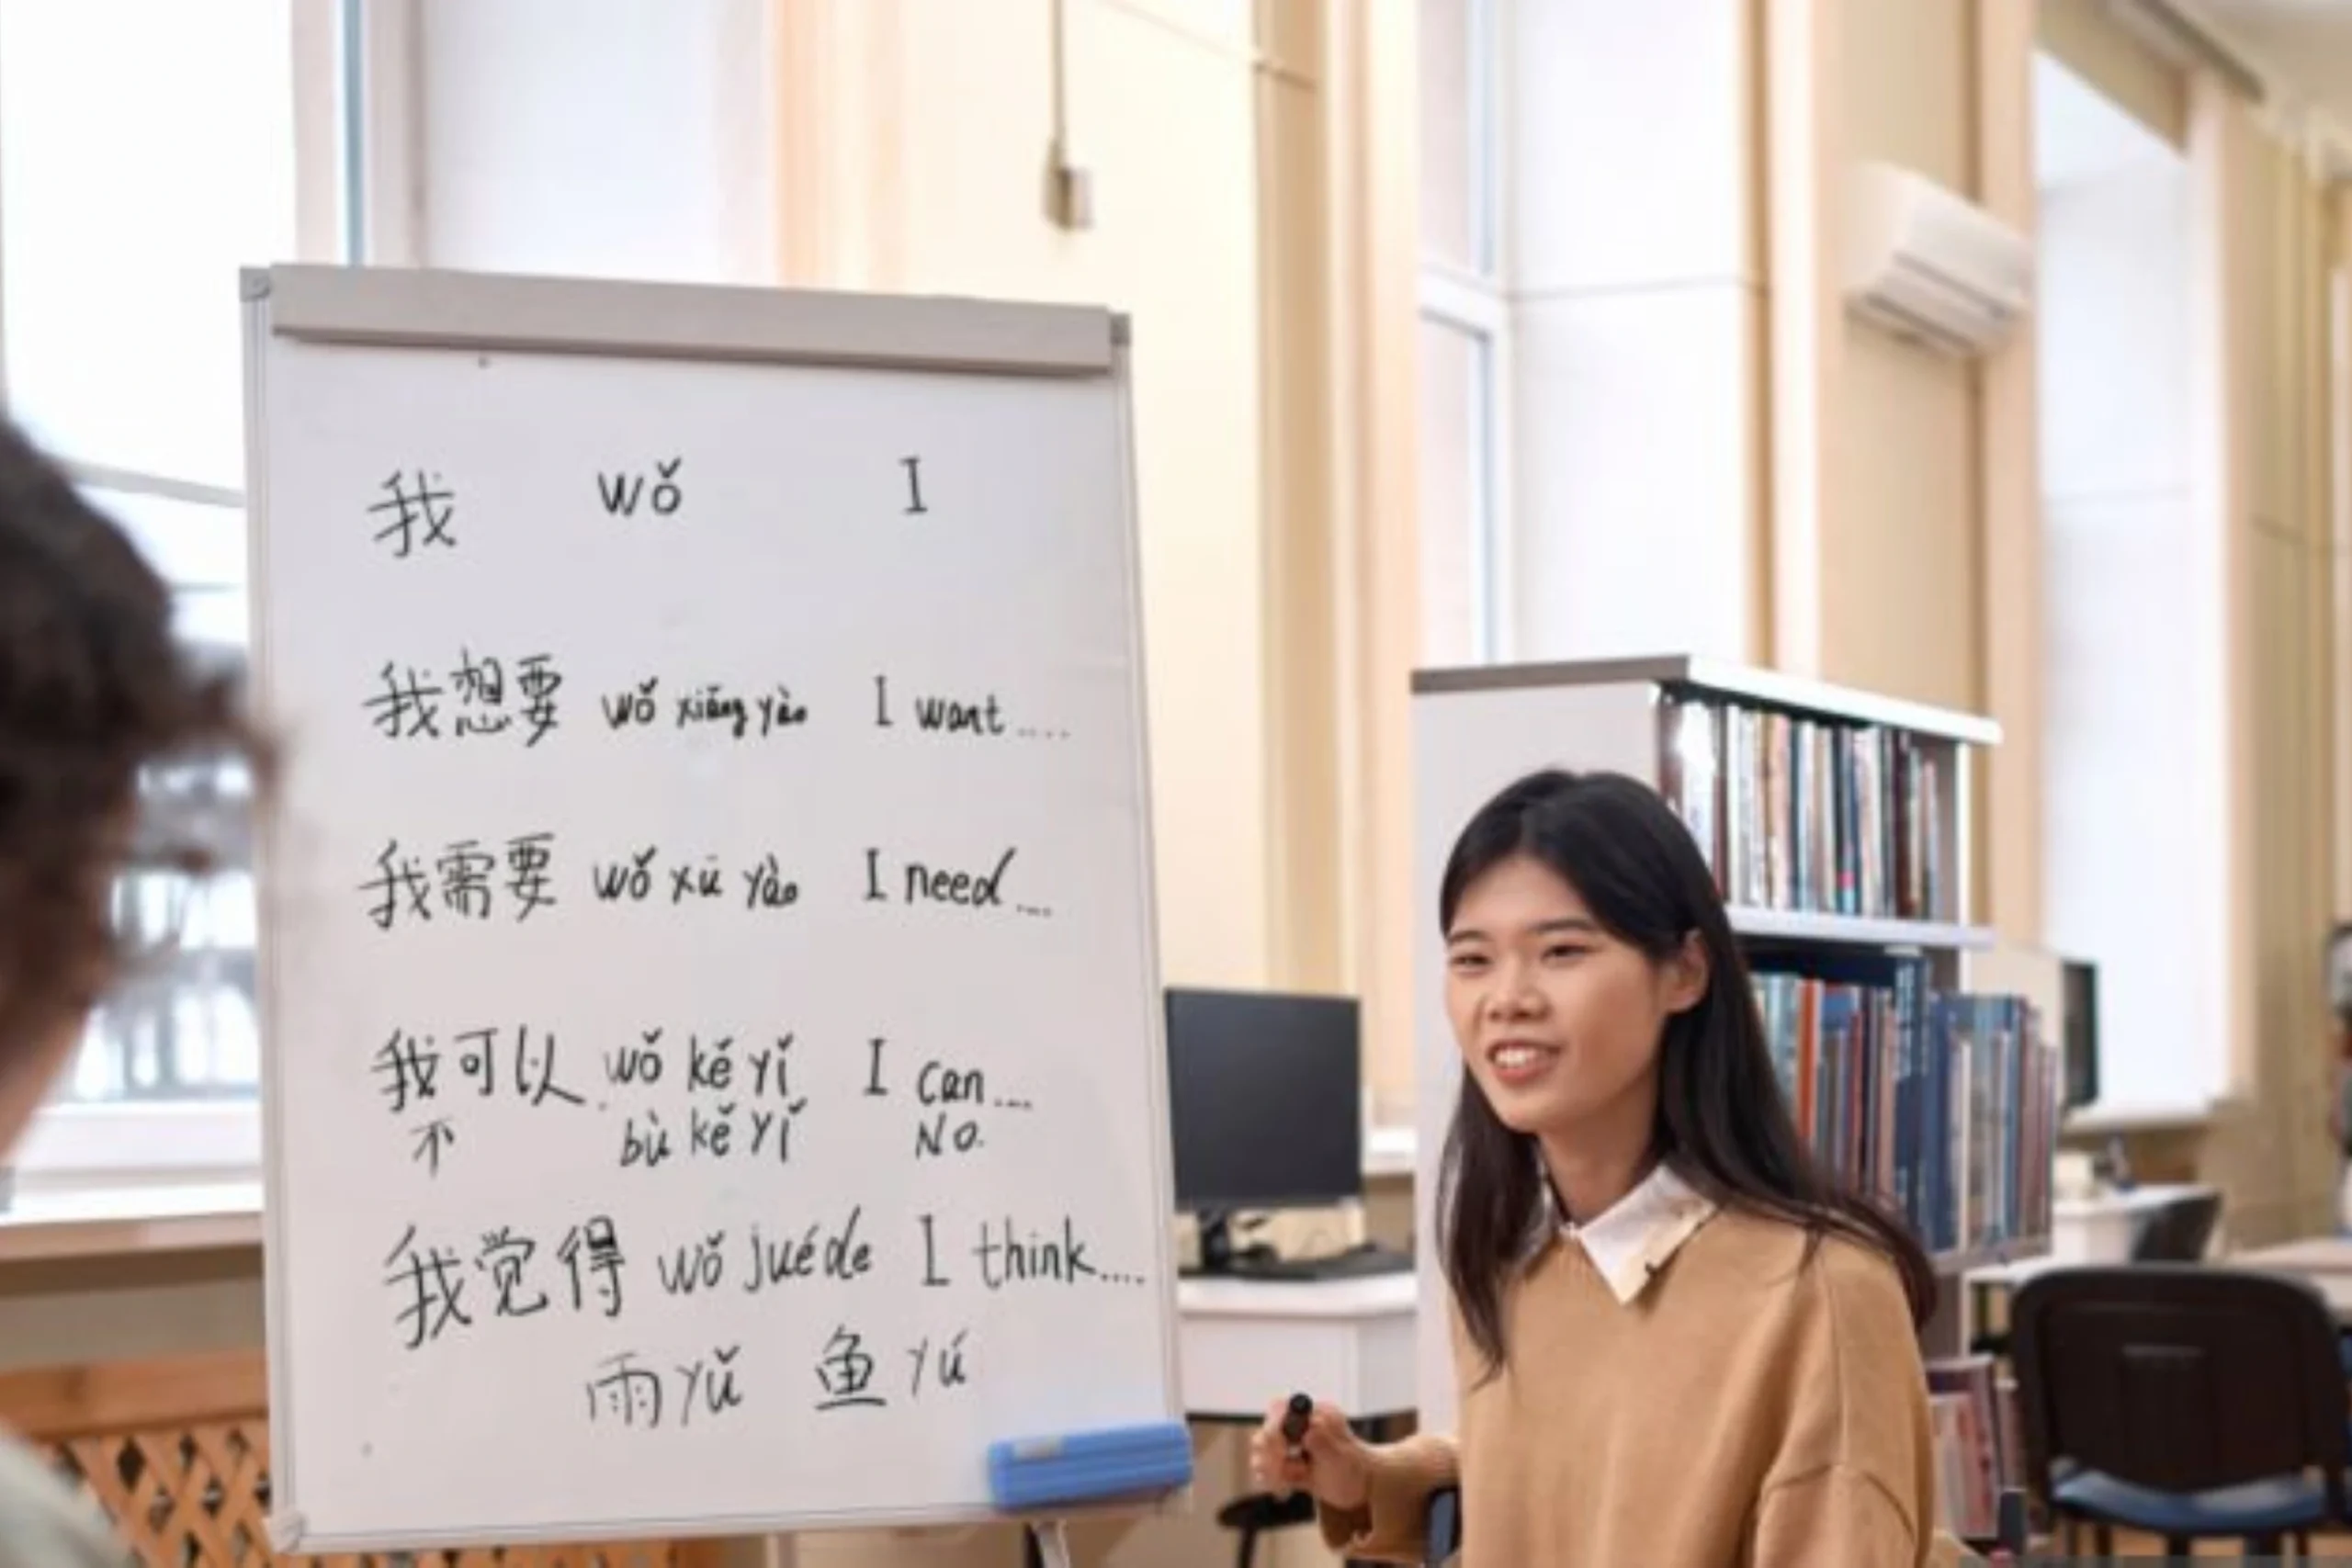 我 wǒ I
我想要 wǒ xiǎng yào I want ....
我需要 wǒ xū yào I need ....
我可以 wǒ kě yǐ I can ...
不 bù kě yǐ No.
我觉得 wǒ juéde I think....
雨 yǔ 鱼 yú